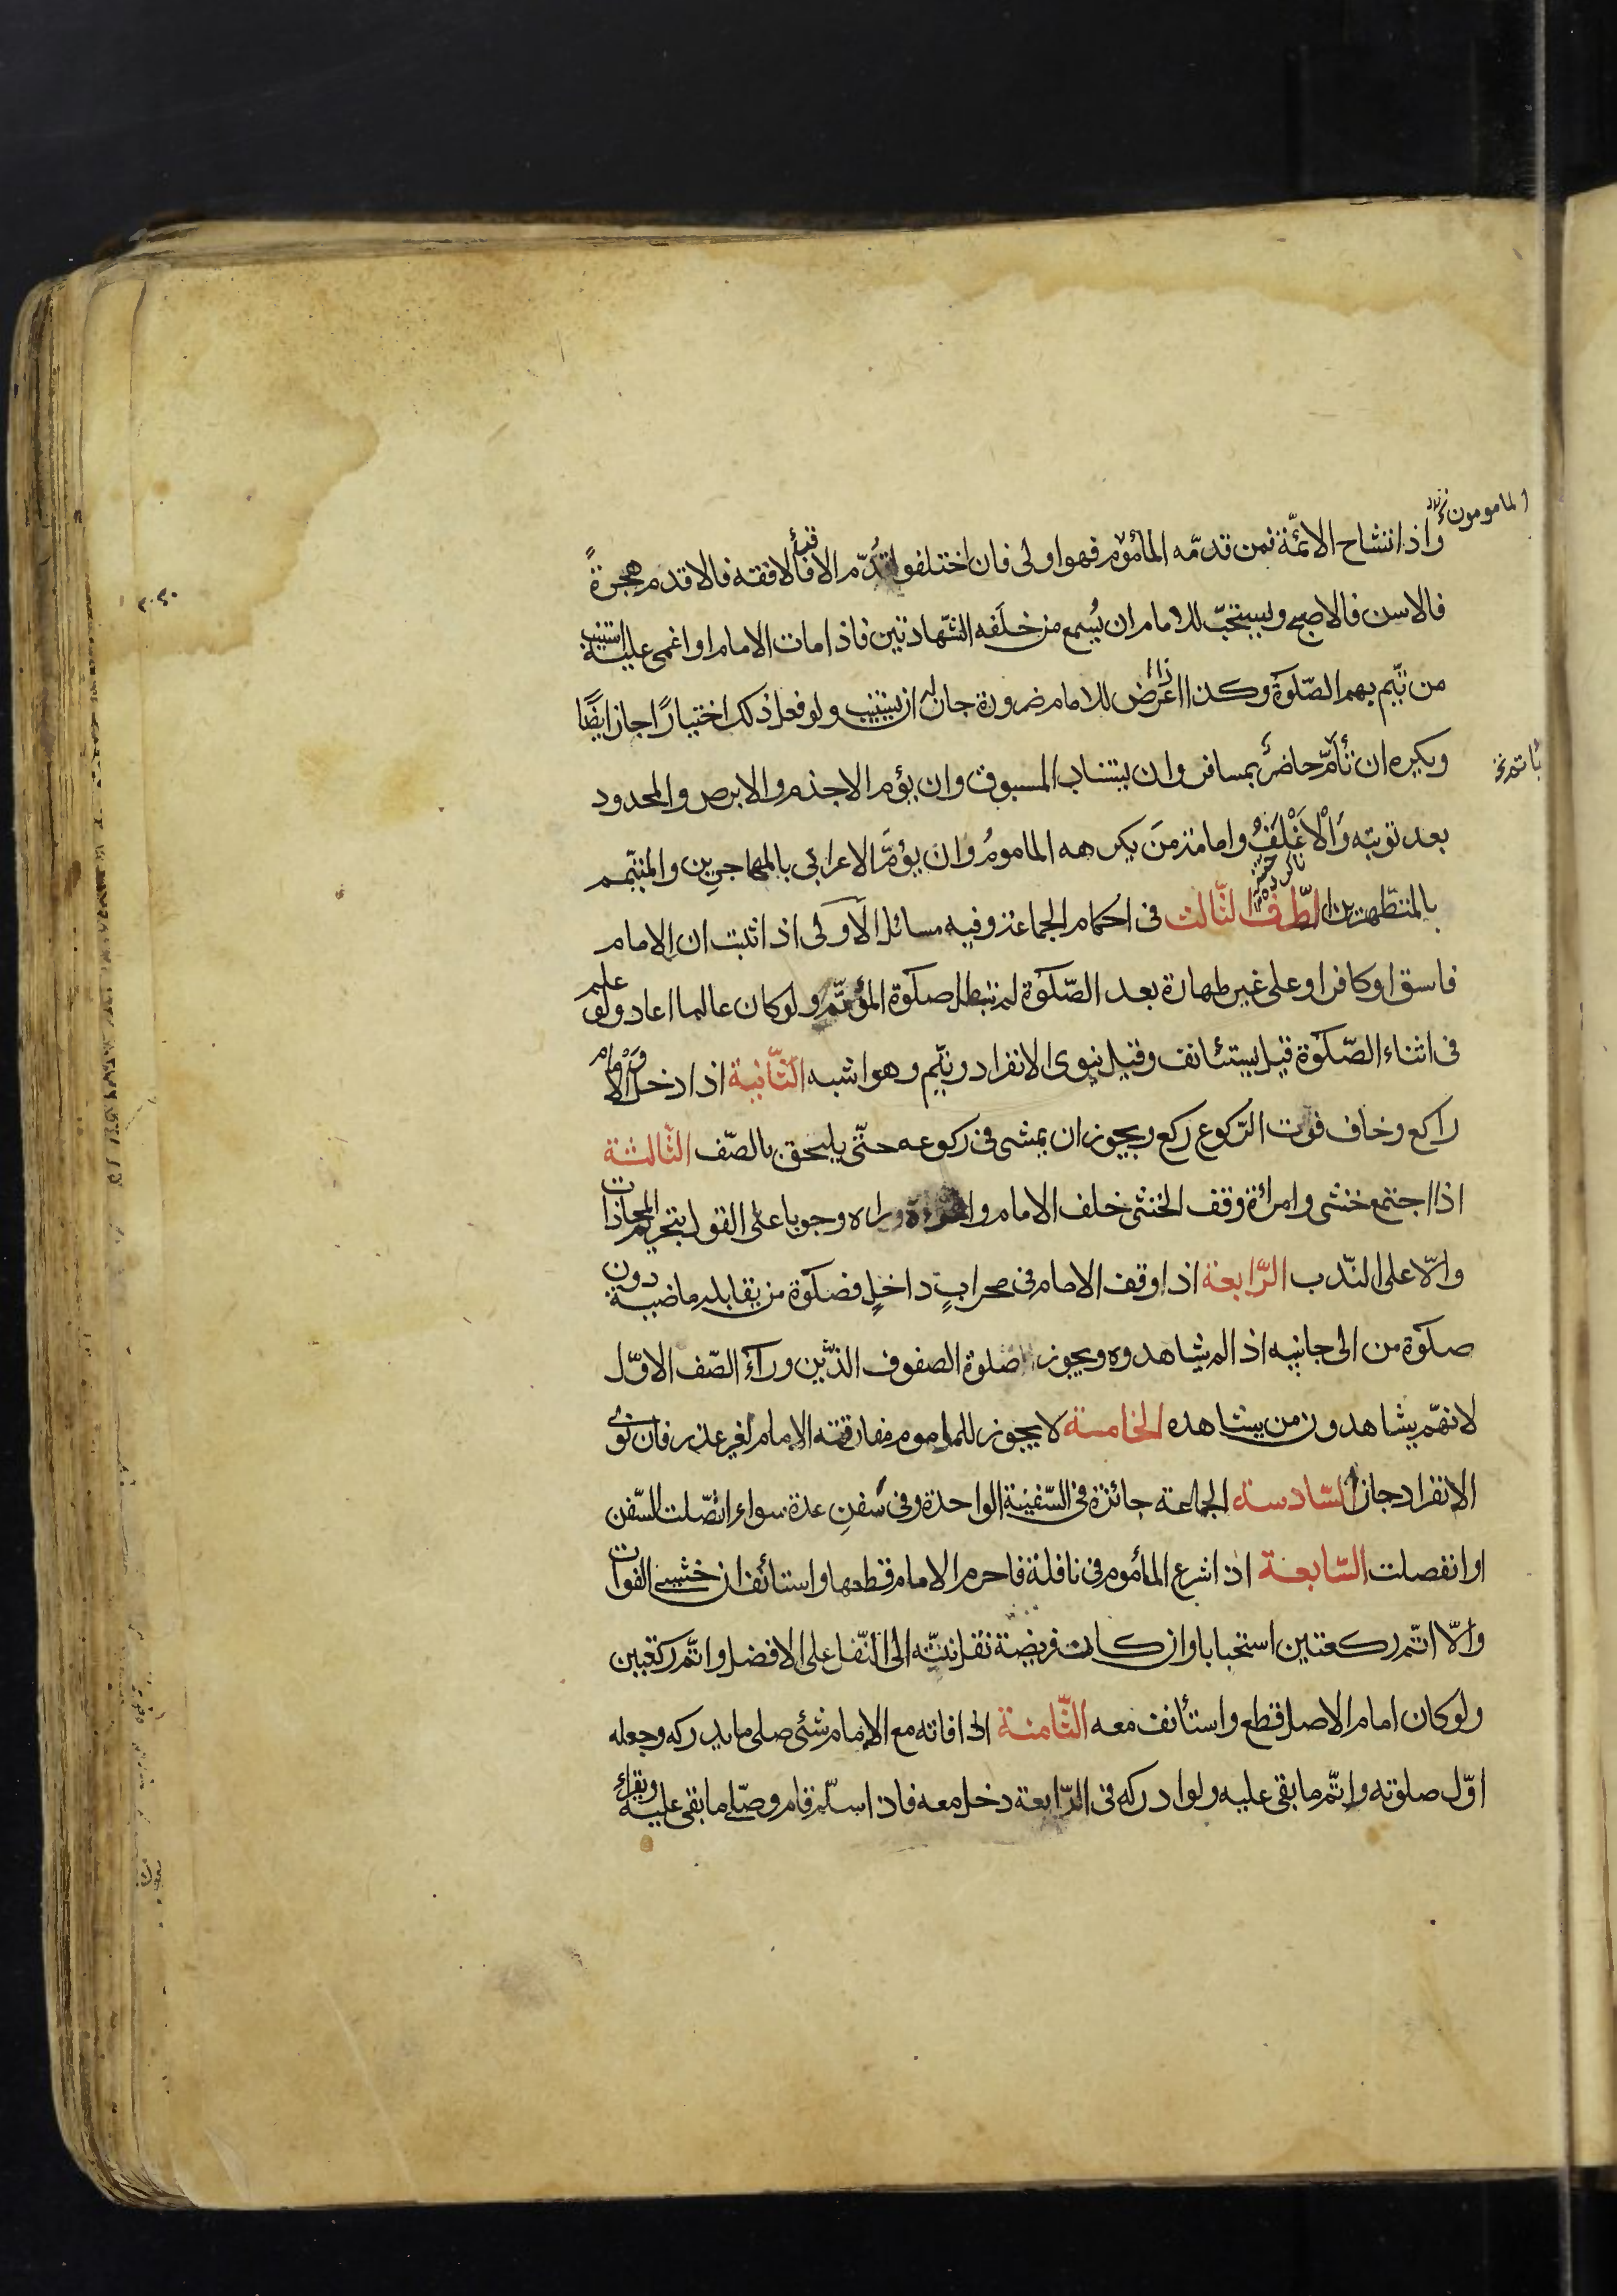 المامومون
واذا تشاح الائمّة فمن قدمّه المأموم فهو اولى فان اختلفوا قُدّم الاقرأ فالافقه فالاقدم هجرةً
فالاسن فالاصبح ويستحبّ للامام ان يُسمع من خلَفه الشّهادتين فاذا مات الامام او اغمى عليه استنيب
من يتّم بهم الصّلوة وكذا اذا عَرَض للامام ضرورة جاز له ان يستنيب ولو فعل ذلك اختيارًا جاز ايضًا
ويكره ان يأتمّ حاضرٌ بمسافر وان يستناب المسبوق وان يؤم الاجذم والابرص والمحدود
بعد توبته وَالْاَغْلَفُ وامامة مَن يكرهه المامومُ وان يؤمَّ الاعرابى بالمهاجرين والمتيمّم
بالمتطّهرين الطّرف الثّالث فى احكام الجماعة وفيه مسائل الاَولى اذا ثبت ان الامام
فاسق او كافر او على غير طهارة بعد الصّلوة لم تبطل صلوة المؤتمّ ولو كان عالما اعاد ولو علم
فى اثناء الصّلوة قيل يستئانف وقيل ينوى الانفراد ويتّم وهو اشبه الثّانية اذا دخل والامام
راكع وخاف فوت الرّكوع ركع ويجوز ان يمشى فى ركوعه حتّى يلحق بالصّف الثّالثة
اذا اجتمع خنثى وامرائة وقف الخنثى خلف الامام والمرءة وراه وجوبا على القول بتحريم المحاذات
والّا على النّدب الرّابعة اذا وقف الامام فى محرابٍ داخلٍ فصلوة من يقابله ماضية دون
صلوة من الى جانبيه اذا لم يشاهدوه ويجوز صلوة الصفوف الذّين ورآء الصّف الاوّل
لانهّم يشاهدون من يشاهده الخامسة لا يجوز للماموم مفارقته الامام لغير عذر فان نوى
الانفراد جاز السّادسة الجماعة جائزة فى السّفينة الواحدة وفى سُفنٍ عدة سواء اتصّلت السّفن
او انفصلت السّابعة اذا شرع المأموم فى نافلة فاحرم الامام قطعها واستأنف ان خشى الفوات
والّا اتّم ركعتين استحبابا وان كانت فريضة نقل نيتّه الى النّفل على الافضل واتّم ركعتين
ولو كان امام الاصل قطع واستأنف معه الثّامنة اذا فاته مع الامام شئ صلى ما يدركه وجعله
اوّل صلوته واتّم ما بقى عليه ولو ادركه فى الرّابعة دخل معه فاذا سلّم قام وصّلى ما بقى عليه ويقراء